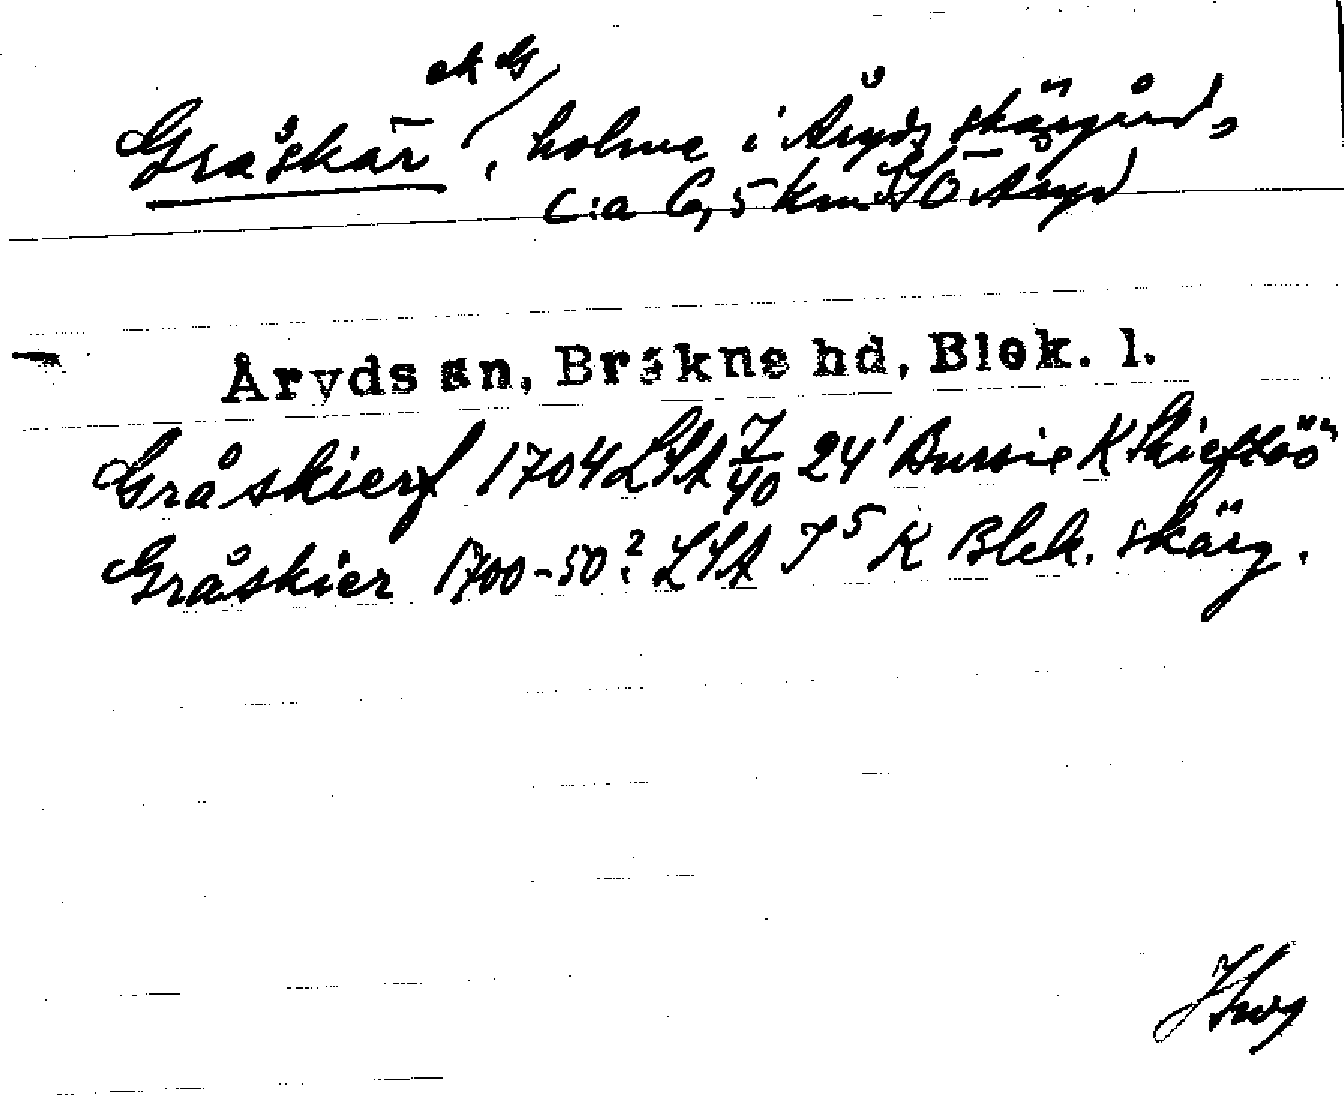 ek G
Gråskär, holme i Åryds skärgård,
c:a 6,5 km SÖ Åryd
Åryds sn, Bräkne hd, Blek. l.
Gråskierf 1704 LSA 7/40 24' Bussie K Skieftöö"
Gråskier 1700-50? LSA 7⁵ K Blek. skärg.